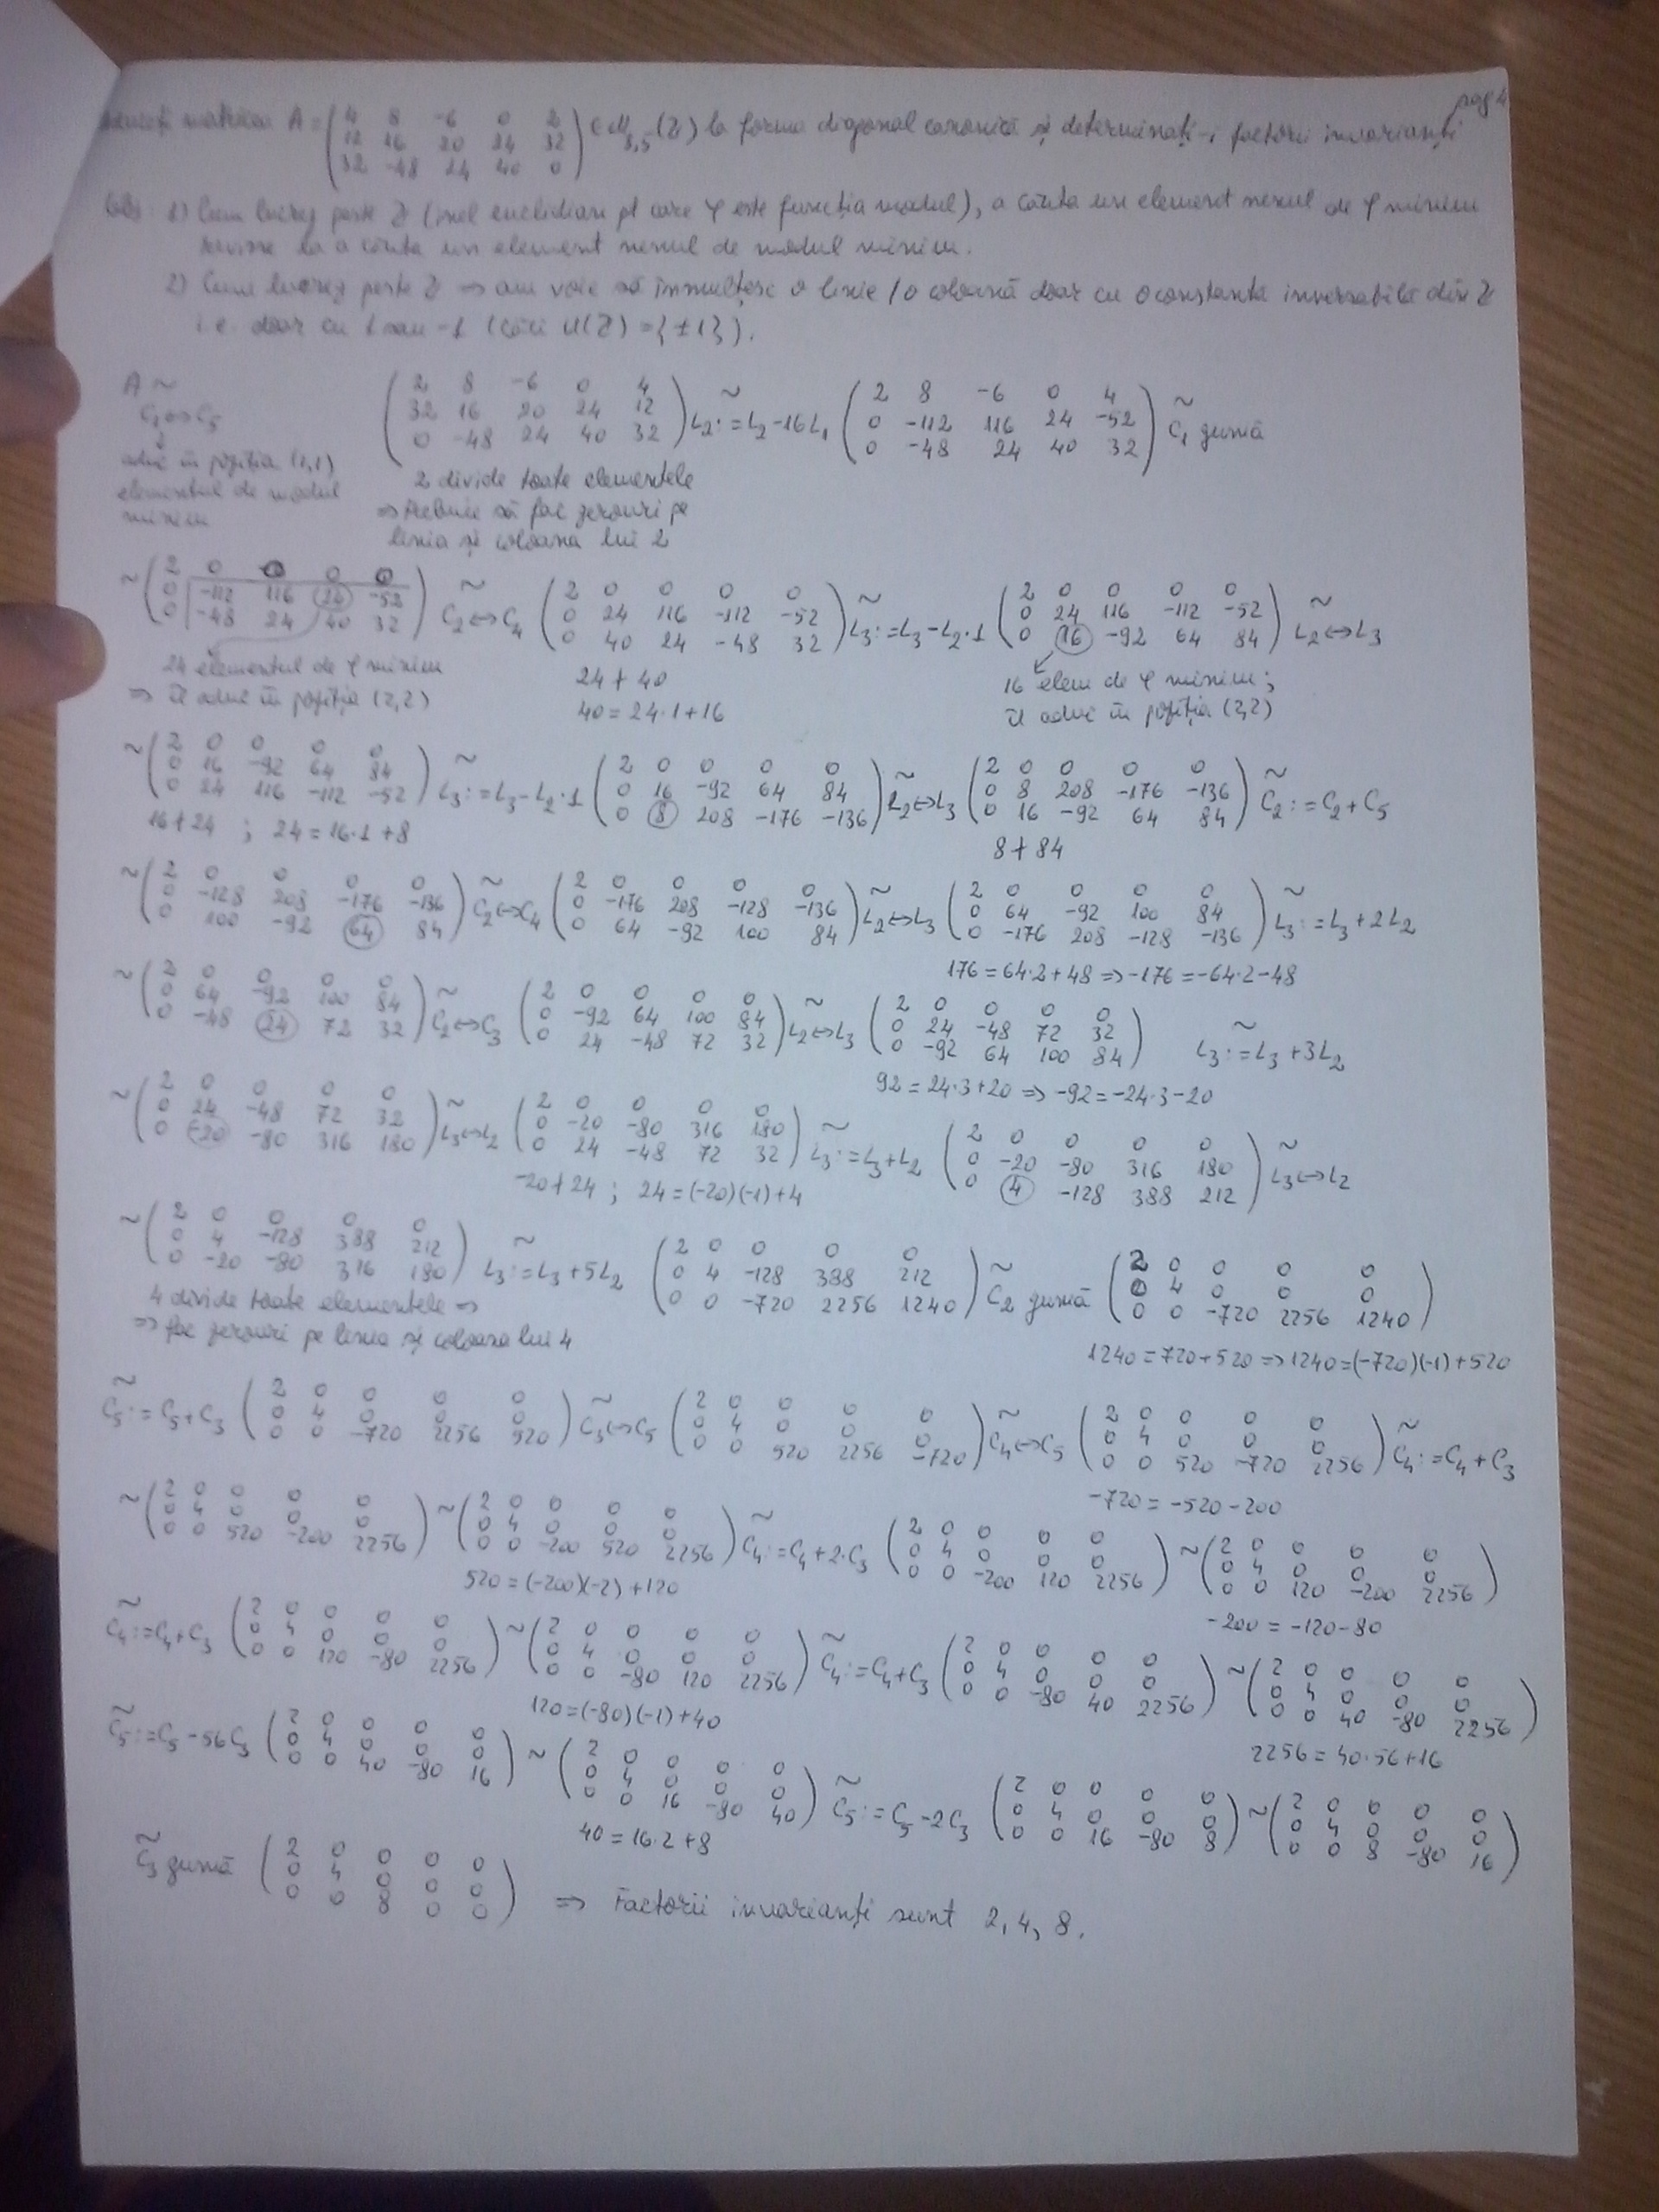 pag 4
matricea A = (4 8 -6 0 2 / 12 16 20 24 32 / 32 -48 24 40 0) ∈ M₃,₅(ℤ) la forma diagonal canonică și determinați-i factorii invarianți
Obs: 1) Cum lucrez peste ℤ (inel euclidian pt care φ este funcția modul), a căuta un element nenul de φ minim
revine la a căuta un element nenul de modul minim.
2) Cum lucrez peste ℤ ⇒ am voie să înmulțesc o linie / o coloană doar cu o constanta inversabilă din ℤ
i.e. doar cu 1 sau -1 (căci U(ℤ) = {±1}).
A ~ C₁↔C₅ (2 8 -6 0 4 / 32 16 20 24 12 / 0 -48 24 40 32) ~ L₂:=L₂-16L₁ (2 8 -6 0 4 / 0 -112 116 24 -52 / 0 -48 24 40 32) ~ C₁ zumă
aduc în poziția (1,1)
elementul de modul
minim
2 divide toate elementele
⇒ trebuie să fac zerouri pe
linia și coloana lui 2
~ (2 0 0 0 0 / 0 -112 116 24 -52 / 0 -48 24 40 32) ~ C₂↔C₄ (2 0 0 0 0 / 0 24 116 -112 -52 / 0 40 24 -48 32) ~ L₃:=L₃-L₂·1 (2 0 0 0 0 / 0 24 116 -112 -52 / 0 16 -92 64 84) ~ L₂↔L₃
24 elementul de φ minim
⇒ îl aduc în poziția (2,2)
24 ∤ 40
40 = 24·1+16
16 elem de φ minim;
îl aduc în poziția (2,2)
~ (2 0 0 0 0 / 0 16 -92 64 84 / 0 24 116 -112 -52) ~ L₃:=L₃-L₂·1 (2 0 0 0 0 / 0 16 -92 64 84 / 0 8 208 -176 -136) ~ L₂↔L₃ (2 0 0 0 0 / 0 8 208 -176 -136 / 0 16 -92 64 84) ~ C₂:=C₂+C₅
16 ∤ 24 ; 24 = 16·1+8
8 ∤ 84
~ (2 0 0 0 0 / 0 -128 208 -176 -136 / 0 100 -92 64 84) ~ C₂↔C₄ (2 0 0 0 0 / 0 -176 208 -128 -136 / 0 64 -92 100 84) ~ L₂↔L₃ (2 0 0 0 0 / 0 64 -92 100 84 / 0 -176 208 -128 -136) ~ L₃:=L₃+2L₂
176 = 64·2+48 ⇒ -176 = -64·2-48
~ (2 0 0 0 0 / 0 64 -92 100 84 / 0 -48 24 72 32) ~ C₂↔C₃ (2 0 0 0 0 / 0 -92 64 100 84 / 0 24 -48 72 32) ~ L₂↔L₃ (2 0 0 0 0 / 0 24 -48 72 32 / 0 -92 64 100 84) ~ L₃:=L₃+3L₂
92 = 24·3+20 ⇒ -92 = -24·3-20
~ (2 0 0 0 0 / 0 24 -48 72 32 / 0 -20 -80 316 180) ~ L₃↔L₂ (2 0 0 0 0 / 0 -20 -80 316 180 / 0 24 -48 72 32) ~ L₃:=L₃+L₂ (2 0 0 0 0 / 0 -20 -80 316 180 / 0 4 -128 388 212) ~ L₃↔L₂
-20 ∤ 24 ; 24 = (-20)(-1)+4
~ (2 0 0 0 0 / 0 4 -128 388 212 / 0 -20 -80 316 180) ~ L₃:=L₃+5L₂ (2 0 0 0 0 / 0 4 -128 388 212 / 0 0 -720 2256 1240) ~ C₂ zumă (2 0 0 0 0 / 0 4 0 0 0 / 0 0 -720 2256 1240)
4 divide toate elementele ⇒
⇒ fac zerouri pe linia și coloana lui 4
1240 = 720+520 ⇒ 1240 = (-720)(-1)+520
~ C₅:=C₅+C₃ (2 0 0 0 0 / 0 4 0 0 0 / 0 0 -720 2256 520) ~ C₃↔C₅ (2 0 0 0 0 / 0 4 0 0 0 / 0 0 520 2256 -720) ~ C₄↔C₅ (2 0 0 0 0 / 0 4 0 0 0 / 0 0 520 -720 2256) ~ C₄:=C₄+C₃
-720 = -520-200
~ (2 0 0 0 0 / 0 4 0 0 0 / 0 0 520 -200 2256) ~ (2 0 0 0 0 / 0 4 0 0 0 / 0 0 -200 520 2256) ~ C₄:=C₄+2·C₃ (2 0 0 0 0 / 0 4 0 0 0 / 0 0 -200 120 2256) ~ (2 0 0 0 0 / 0 4 0 0 0 / 0 0 120 -200 2256)
520 = (-200)(-2)+120
-200 = -120-80
~ C₄:=C₄+C₃ (2 0 0 0 0 / 0 4 0 0 0 / 0 0 120 -80 2256) ~ (2 0 0 0 0 / 0 4 0 0 0 / 0 0 -80 120 2256) ~ C₄:=C₄+C₃ (2 0 0 0 0 / 0 4 0 0 0 / 0 0 -80 40 2256) ~ (2 0 0 0 0 / 0 4 0 0 0 / 0 0 40 -80 2256)
120 = (-80)(-1)+40
2256 = 40·56+16
~ C₅:=C₅-56C₃ (2 0 0 0 0 / 0 4 0 0 0 / 0 0 40 -80 16) ~ (2 0 0 0 0 / 0 4 0 0 0 / 0 0 16 -80 40) ~ C₅:=C₅-2C₃ (2 0 0 0 0 / 0 4 0 0 0 / 0 0 16 -80 8) ~ (2 0 0 0 0 / 0 4 0 0 0 / 0 0 8 -80 16)
40 = 16·2+8
~ C₃ zumă (2 0 0 0 0 / 0 4 0 0 0 / 0 0 8 0 0) ⇒ Factorii invarianți sunt 2, 4, 8.